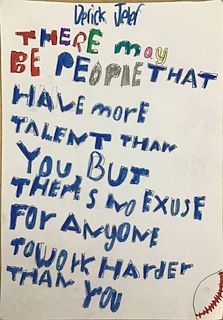 Derick Jeter
THERE may
BE PEOPLE THAT
HAVE more
TALENT THAN
YOU, BUT
THERE'S NO EXUSE
FOR ANYONE
TO WORK HARDER
THAN YOU